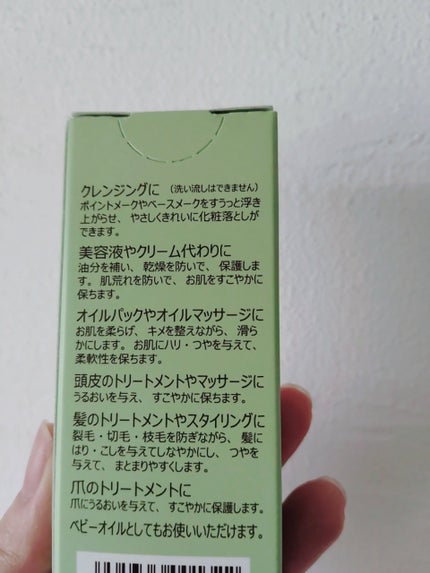 クレンジングに (洗い流しはできません)
ポイントメークやベースメークをすうっと浮き
上がらせ、やさしくきれいに化粧落としが
できます。
美容液やクリーム代わりに
油分を補い、乾燥を防いで、保護しま
す。肌荒れを防いで、お肌をすこやかに
保ちます。
オイルパックやオイルマッサージに
お肌を柔らげ、キメを整えながら、滑ら
かにします。お肌にハリ・つやを与えて、
柔軟性を保ちます。
頭皮のトリートメントやマッサージに
うるおいを与え、すこやかに保ちます。
髪のトリートメントやスタイリングに
裂毛・切毛・枝毛を防ぎながら、髪に
はり・こしを与えてしなやかにし、つやを
与えて、まとまりやすくします。
爪のトリートメントに
爪にうるおいを与えて、すこやかに保護します。
ベビーオイルとしてもお使いいただけます。